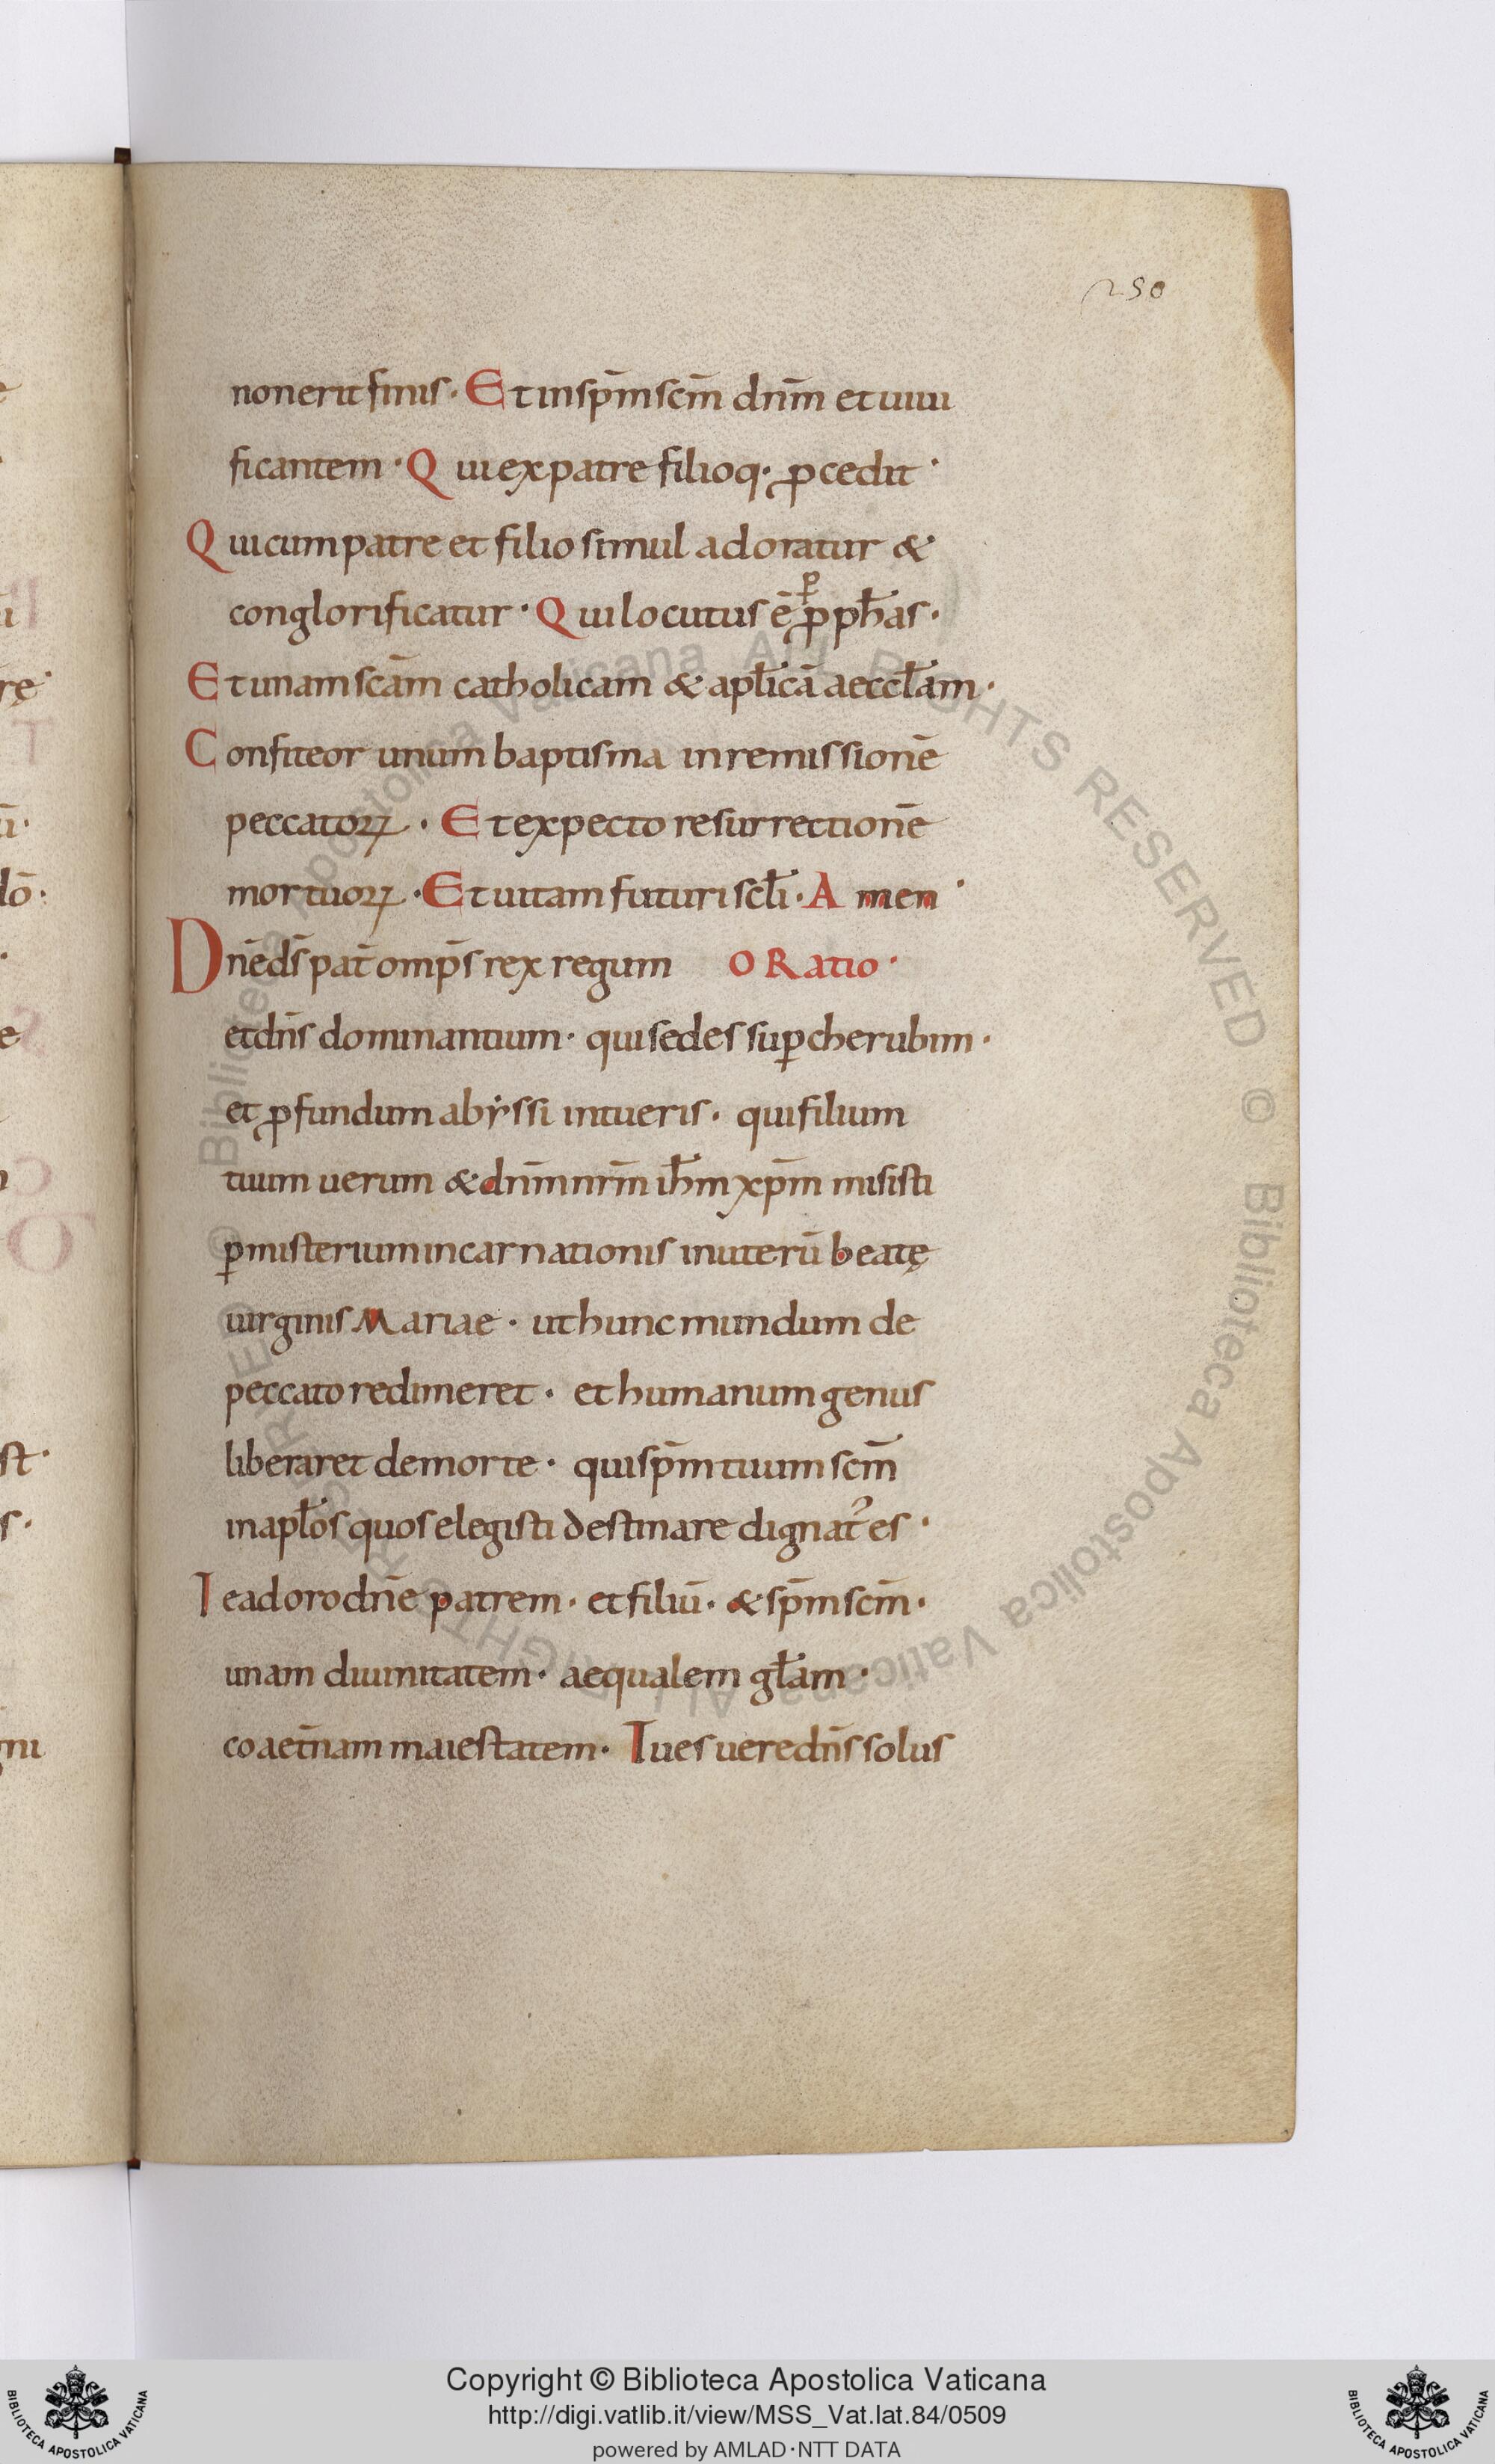 250
non erit finis · Et in sp̄m scm̄ dnm̄ et uiui
ficantem · Qui ex patre filioq· ꝓcedit ·
Qui cum patre et filio simul adoratur &
conglorificatur · Qui locutus ē ꝓ ꝓph̄as ·
Et unam scām catholicam & apl̄icā aeccl̄am ·
Confiteor unum baptisma in remissionē
peccatoꝝ · Et expecto resurrectionē
mortuoꝝ · Et uitam futuri scl̄i · Amen ·
Dn̄e ds̄ pat̄ omp̄s rex regum ORatio ·
et dn̄s dominantium · qui sedes suꝑ cherubim ·
et ꝓfundum abẏssi intueris · qui filium
tuum uerum & dnm̄ nrm̄ ih̄m xp̄m misisti
ꝑ misterium incarnationis in uterū beatę
uirginis Mariae · ut hunc mundum de
peccato redimeret · et humanum genus
liberaret de morte · qui sp̄m tuum scm̄
in apl̄os quos elegisti destinare dignat᷒ es ·
Te adoro dn̄e patrem · et filiū · & sp̄m scm̄ ·
unam diuinitatem · aequalem gl̄am ·
coaet̄nam maiestatem · Tu es uere dn̄s solus
© Biblioteca Apostolica Vaticana ALL RIGHTS RESERVED © Biblioteca Apostolica Vaticana ALL RIGHTS RESERVED
Copyright © Biblioteca Apostolica Vaticana
http://digi.vatlib.it/view/MSS_Vat.lat.84/0509
powered by AMLAD·NTT DATA
BIBLIOTECA APOSTOLICA VATICANA
BIBLIOTECA APOSTOLICA VATICANA